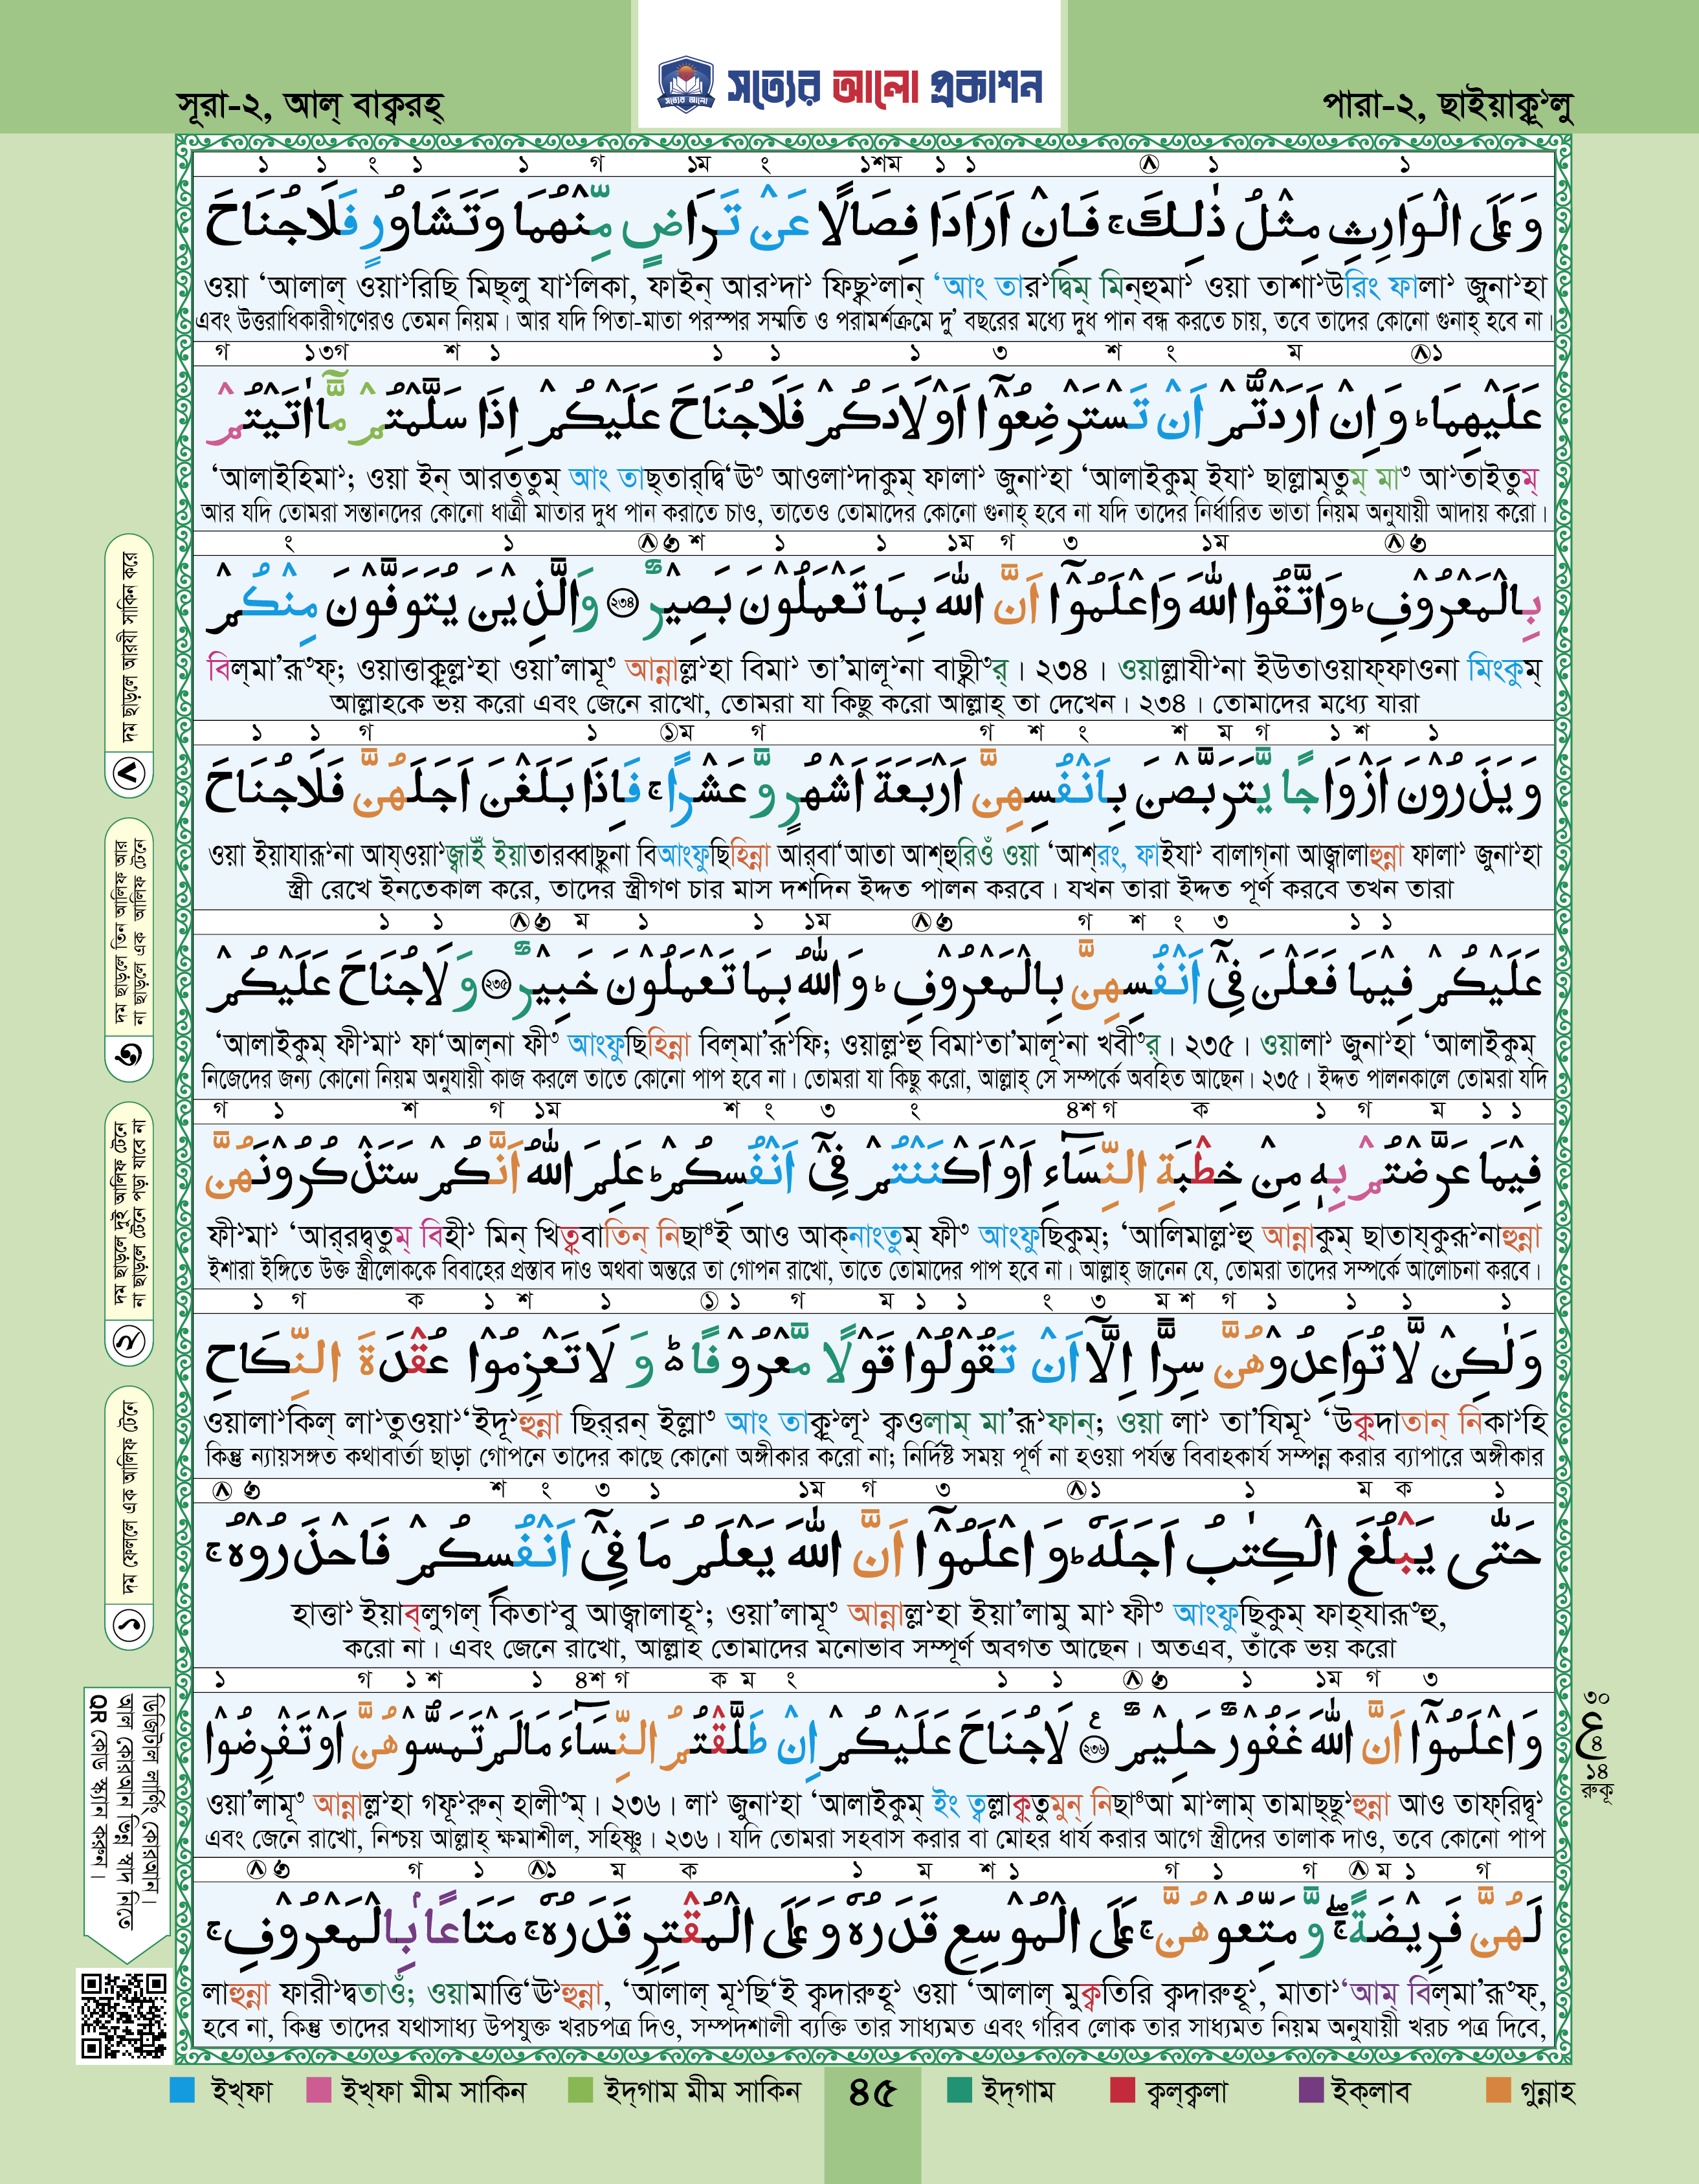 সত্যের আলো
সত্যের আলো প্রকাশন
সূরা-২, আল্ বাক্বরহ্
পারা-২, ছাইয়াক্বূ১লু
১ ১ ং ১ ১ গ ১ম ং ১শম ১ ১ ৮ ১ ১
وَعَلَى الْوَارِثِ مِثْلُ ذٰلِكَ ۚ فَاِنْ اَرَادَا فِصَالًا عَنْ تَرَاضٍ مِّنْهُمَا وَتَشَاوُرٍ فَلَاجُنَاحَ
ওয়া ‘আলাল্ ওয়া১রিছি মিছ্লু যা১লিকা, ফাইন্ আর১দা১ ফিছ্ব১লান্ ‘আং তার১দ্বিম্ মিন্হুমা১ ওয়া তাশা১উরিং ফালা১ জুনা১হা
এবং উত্তরাধিকারীগণেরও তেমন নিয়ম। আর যদি পিতা-মাতা পরস্পর সম্মতি ও পরামর্শক্রমে দু’ বছরের মধ্যে দুধ পান বন্ধ করতে চায়, তবে তাদের কোনো গুনাহ্ হবে না।
গ ১৩গ শ ১ ১ ১ ১ ৩ শ ং ম ৮১
عَلَيْهِمَا ؕ وَاِنْ اَرَدْتُّمْ اَنْ تَسْتَرْضِعُوْٓا اَوْلَادَكُمْ فَلَاجُنَاحَ عَلَيْكُمْ اِذَا سَلَّمْتُمْ مَّآ اٰتَيْتُمْ
‘আলাইহিমা১; ওয়া ইন্ আরত্তুম্ আং তাছ্তার্দ্বি‘ঊ৩ আওলা১দাকুম্ ফালা১ জুনা১হা ‘আলাইকুম্ ইযা১ ছাল্লাম্তুম্ মা৩ আ১তাইতুম্
আর যদি তোমরা সন্তানদের কোনো ধাত্রী মাতার দুধ পান করাতে চাও, তাতেও তোমাদের কোনো গুনাহ্ হবে না যদি তাদের নির্ধারিত ভাতা নিয়ম অনুযায়ী আদায় করো।
ং ১ ৮৩ শ ১ ১ ১ম গ ৩ ১ম ৮৩
بِالْمَعْرُوْفِ ؕ وَاتَّقُوا اللّٰهَ وَاعْلَمُوْٓا اَنَّ اللّٰهَ بِمَا تَعْمَلُوْنَ بَصِيْرٌ ২৩৪ وَالَّذِيْنَ يُتَوَفَّوْنَ مِنْكُمْ
বিল্মা’রূ৩ফ্; ওয়াত্তাক্বুল্ল১হা ওয়া’লামূ৩ আন্নাল্ল১হা বিমা১ তা’মালূ১না বাছ্বী৩র্। ২৩৪। ওয়াল্লাযী১না ইউতাওয়াফ্ফাওনা মিংকুম্
আল্লাহকে ভয় করো এবং জেনে রাখো, তোমরা যা কিছু করো আল্লাহ্ তা দেখেন। ২৩৪। তোমাদের মধ্যে যারা
১ ১ গ ১ ১ম গ গ শ ং শ ম গ ১ শ ১
وَيَذَرُوْنَ اَزْوَاجًا يَّتَرَبَّصْنَ بِاَنْفُسِهِنَّ اَرْبَعَةَ اَشْهُرٍ وَّعَشْرًا ۚ فَاِذَا بَلَغْنَ اَجَلَهُنَّ فَلَاجُنَاحَ
ওয়া ইয়াযারূ১না আয্ওয়া১জ্বাইঁ ইয়াতারব্বাছ্বনা বিআংফুছিহিন্না আর্বা‘আতা আশ্হুরিওঁ ওয়া ‘আশ্রং, ফাইযা১ বালাগ্না আজ্বালাহুন্না ফালা১ জুনা১হা
স্ত্রী রেখে ইনতেকাল করে, তাদের স্ত্রীগণ চার মাস দশদিন ইদ্দত পালন করবে। যখন তারা ইদ্দত পূর্ণ করবে তখন তারা
১ ১ ৮৩ ম ১ ১ ১ম ৮৩ গ শ ং ৩ ১ ১
عَلَيْكُمْ فِيْمَا فَعَلْنَ فِيْٓ اَنْفُسِهِنَّ بِالْمَعْرُوْفِ ؕ وَاللّٰهُ بِمَا تَعْمَلُوْنَ خَبِيْرٌ ২৩৫ وَلَاجُنَاحَ عَلَيْكُمْ
‘আলাইকুম্ ফী১মা১ ফা‘আল্না ফী৩ আংফুছিহিন্না বিল্মা’রূ১ফি; ওয়াল্ল১হু বিমা১তা’মালূ১না খবী৩র্। ২৩৫। ওয়ালা১ জুনা১হা ‘আলাইকুম্
নিজেদের জন্য কোনো নিয়ম অনুযায়ী কাজ করলে তাতে কোনো পাপ হবে না। তোমরা যা কিছু করো, আল্লাহ্ সে সম্পর্কে অবহিত আছেন। ২৩৫। ইদ্দত পালনকালে তোমরা যদি
গ ১ শ গ ১ম শ ং ৩ ং ৪শ গ ক ১ গ ম ১ ১
فِيْمَا عَرَّضْتُمْ بِهٖ مِنْ خِطْبَةِ النِّسَآءِ اَوْ اَكْنَنْتُمْ فِيْٓ اَنْفُسِكُمْ ؕ عَلِمَ اللّٰهُ اَنَّكُمْ سَتَذْكُرُوْنَهُنَّ
ফী১মা১ ‘আর্রদ্বতুম্ বিহী১ মিন্ খিত্ববাতিন্ নিছা৪ই আও আক্নাংতুম্ ফী৩ আংফুছিকুম্; ‘আলিমাল্ল১হু আন্নাকুম্ ছাতায্কুরূ১নাহুন্না
ইশারা ইঙ্গিতে উক্ত স্ত্রীলোককে বিবাহের প্রস্তাব দাও অথবা অন্তরে তা গোপন রাখো, তাতে তোমাদের পাপ হবে না। আল্লাহ্ জানেন যে, তোমরা তাদের সম্পর্কে আলোচনা করবে।
১ গ ক ১ শ ১ ১ ১ গ ম ১ ১ ং ৩ ম শ গ ১ ১ ১ ১
وَلٰكِنْ لَّا تُوَاعِدُوْهُنَّ سِرًّا اِلَّآ اَنْ تَقُوْلُوْا قَوْلًا مَّعْرُوْفًا ؕ وَلَا تَعْزِمُوْا عُقْدَةَ النِّكَاحِ
ওয়ালা১কিল্ লা১তুওয়া১‘ইদূ১হুন্না ছির্রন্ ইল্লা৩ আং তাক্বূ১লূ১ ক্বওলাম্ মা’রূ১ফান্; ওয়া লা১ তা’যিমূ১ ‘উক্বদাতান্ নিকা১হি
কিন্তু ন্যায়সঙ্গত কথাবার্তা ছাড়া গোপনে তাদের কাছে কোনো অঙ্গীকার করো না; নির্দিষ্ট সময় পূর্ণ না হওয়া পর্যন্ত বিবাহকার্য সম্পন্ন করার ব্যাপারে অঙ্গীকার
৮ ৩ শ ং ৩ ১ ১ম গ ৩ ৮১ ১ ম ক ১
حَتّٰى يَبْلُغَ الْكِتٰبُ اَجَلَهٗ ؕ وَاعْلَمُوْٓا اَنَّ اللّٰهَ يَعْلَمُ مَا فِيْٓ اَنْفُسِكُمْ فَاحْذَرُوْهُ ۚ
হাত্তা১ ইয়াব্লুগল্ কিতা১বু আজ্বালাহূ১; ওয়া’লামূ৩ আন্নাল্ল১হা ইয়া’লামু মা১ ফী৩ আংফুছিকুম্ ফাহ্যারূ৩হু,
করো না। এবং জেনে রাখো, আল্লাহ তোমাদের মনোভাব সম্পূর্ণ অবগত আছেন। অতএব, তাঁকে ভয় করো
১ গ ১ শ ১ ৪শ গ ক ম ং ১ ১ ৮৩ ১ ১ম গ ৩
وَاعْلَمُوْٓا اَنَّ اللّٰهَ غَفُوْرٌ حَلِيْمٌ ২৩৬ لَاجُنَاحَ عَلَيْكُمْ اِنْ طَلَّقْتُمُ النِّسَآءَ مَالَمْ تَمَسُّوْهُنَّ اَوْ تَفْرِضُوْا
ওয়া’লামূ৩ আন্নাল্ল১হা গফূ১রুন্ হালী৩ম্। ২৩৬। লা১ জুনা১হা ‘আলাইকুম্ ইং ত্বল্লাক্বতুমুন্ নিছা৪আ মা১লাম্ তামাছ্ছূ১হুন্না আও তাফ্রিদ্বূ১
এবং জেনে রাখো, নিশ্চয় আল্লাহ্ ক্ষমাশীল, সহিষ্ণু। ২৩৬। যদি তোমরা সহবাস করার বা মোহর ধার্য করার আগে স্ত্রীদের তালাক দাও, তবে কোনো পাপ
৮৩ গ ১ ৮১ ম ক ১ ম শ ১ গ ১ গ ৮ ম ১ গ
لَهُنَّ فَرِيْضَةً ۖۚ وَّمَتِّعُوْهُنَّ ۚ عَلَى الْمُوْسِعِ قَدَرُهٗ وَعَلَى الْمُقْتِرِ قَدَرُهٗ ۚ مَتَاعًا ۢ بِالْمَعْرُوْفِ ۚ
লাহুন্না ফারী১দ্বতাওঁ; ওয়ামাত্তি‘ঊ১হুন্না, ‘আলাল্ মূ১ছি‘ই ক্বদারুহূ১ ওয়া ‘আলাল্ মুক্বতিরি ক্বদারুহূ১, মাতা১‘আম্ বিল্মা’রূ৩ফ্,
হবে না, কিন্তু তাদের যথাসাধ্য উপযুক্ত খরচপত্র দিও, সম্পদশালী ব্যক্তি তার সাধ্যমত এবং গরিব লোক তার সাধ্যমত নিয়ম অনুযায়ী খরচ পত্র দিবে,
৮ দম ছাড়লে আরযী সাকিন করে
৩ দম ছাড়লে তিন আলিফ আর
না ছাড়লে এক আলিফ টেনে
২ দম ছাড়লে দুই আলিফ টেনে
না ছাড়লে টেনে পড়া যাবে না
১ দম ফেললে এক আলিফ টেনে
ডিজিটাল লার্নিং কোরআন।
আল কোরআন ভিন্ন স্বাদ নিতে
QR কোড স্ক্যান করুন।
৩০
ع
৪
১৪
রুকূ
ইখ্ফা
ইখ্ফা মীম সাকিন
ইদ্গাম মীম সাকিন
৪৫
ইদ্গাম
ক্বল্ক্বলা
ইক্লাব
গুন্নাহ